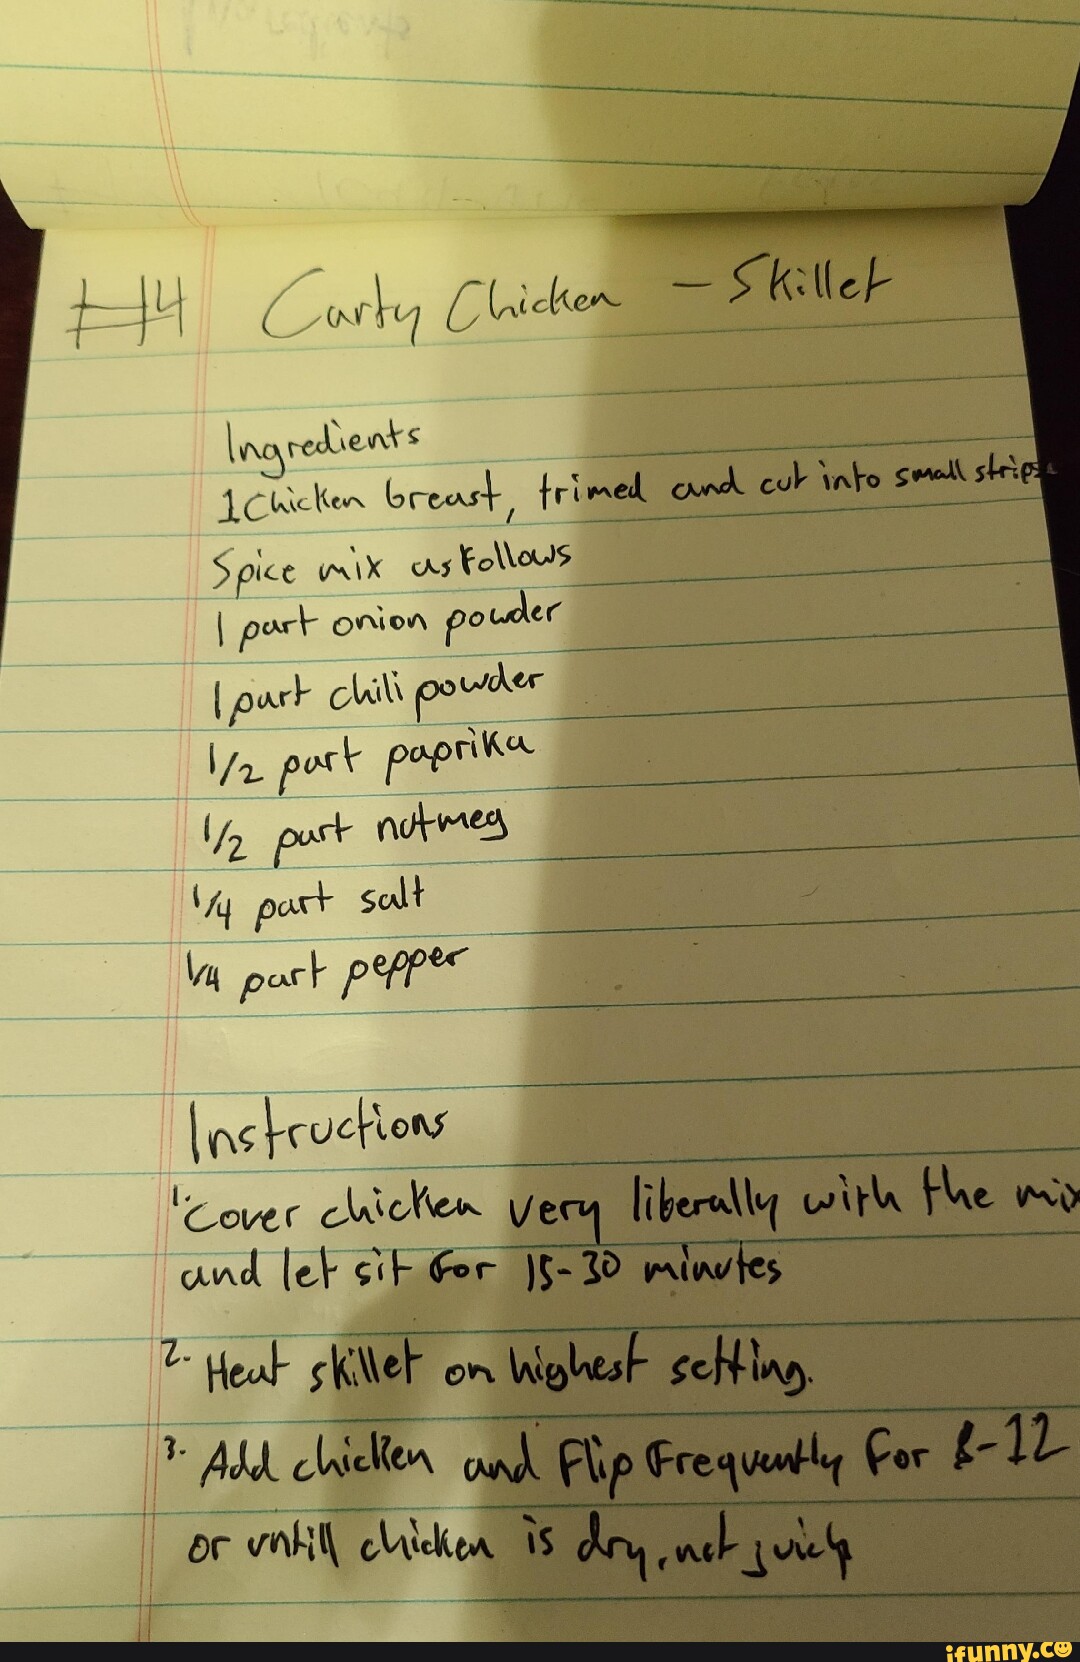 Ingredients
#4 Carty Chicken - Skillet
Ingredients
1 Chicken breast, trimed and cut into small strips
Spice mix as follows
1 part onion powder
1 part chili powder
1/2 part paprika
1/2 part nutmeg
1/4 part salt
1/4 part pepper
Instructions
1. Cover chicken very liberally with the mix
and let sit for 15-30 minutes
2. Heat skillet on highest setting.
3. Add chicken and flip frequently for 8-12
or untill chicken is dry, not
ifunny.co